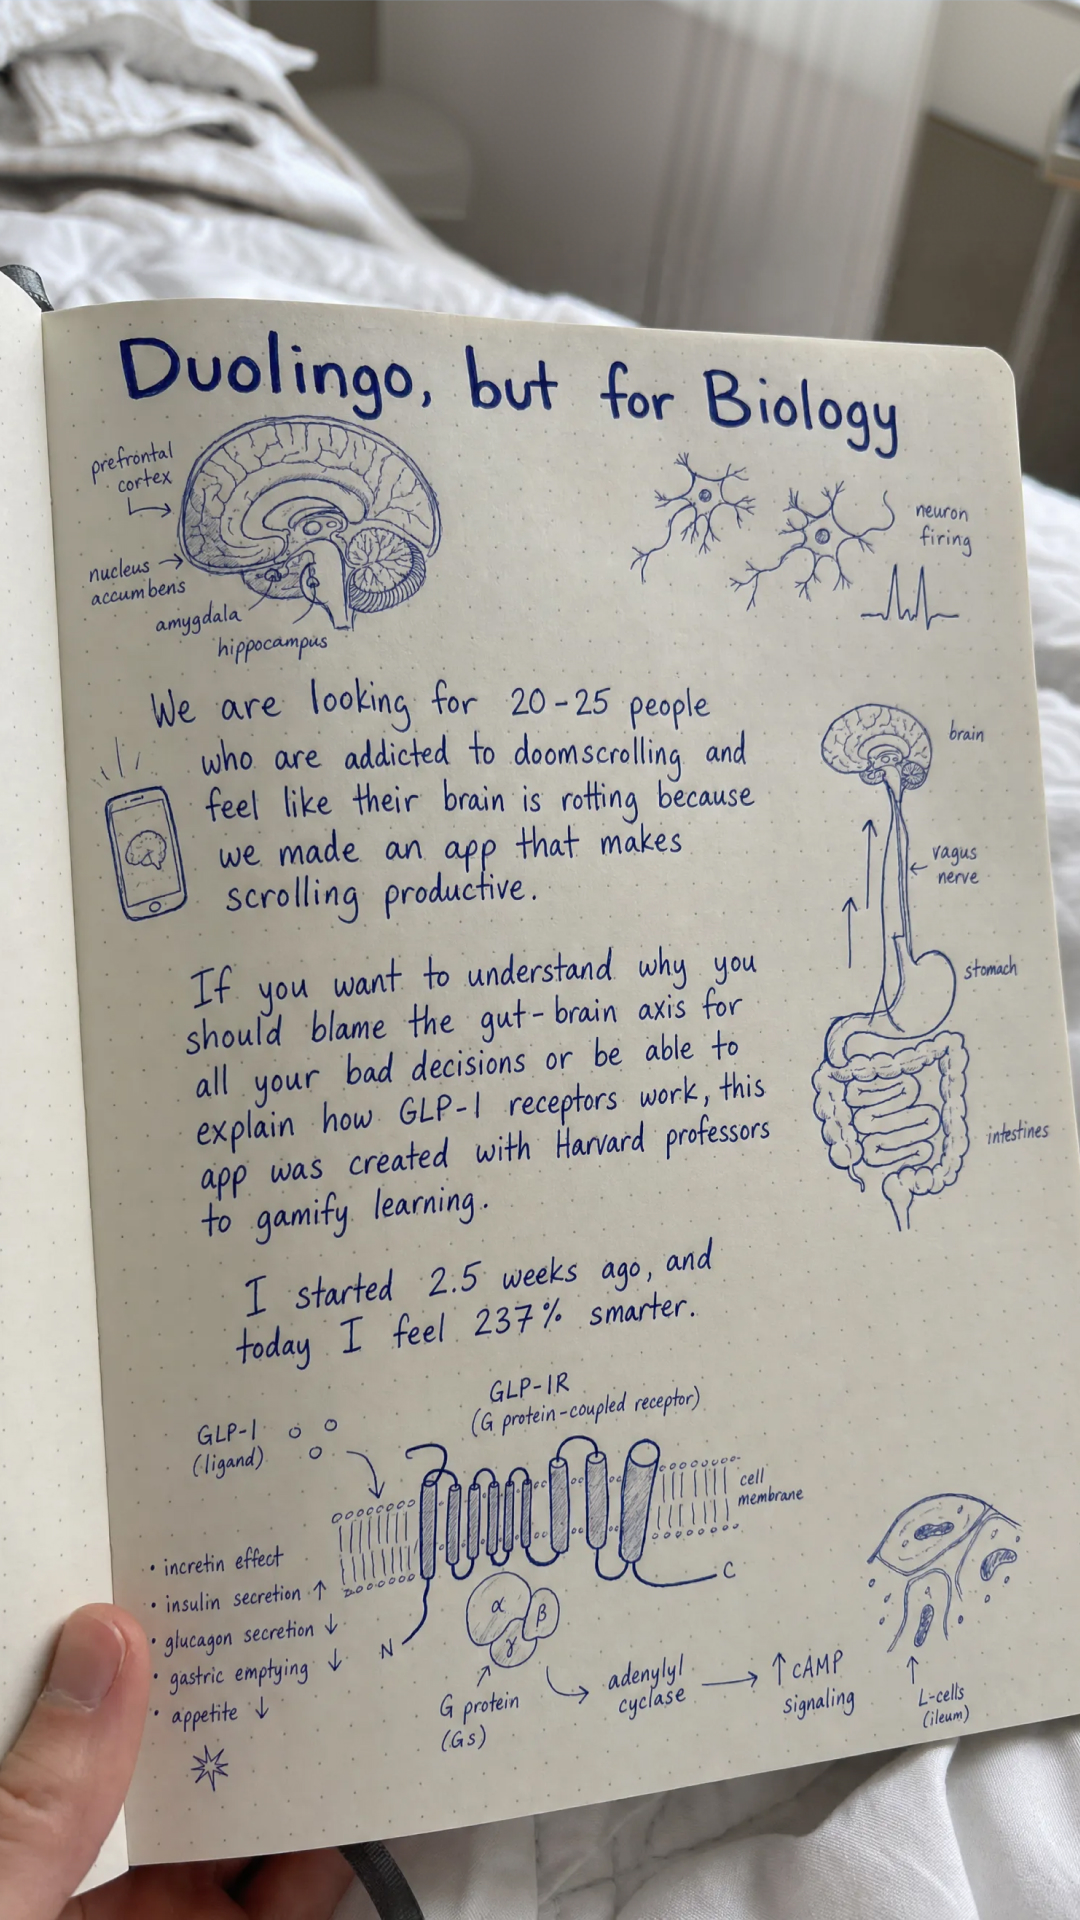 Duolingo, but for Biology
prefrontal
cortex
nucleus
accumbens
amygdala
hippocampus
neuron
firing
We are looking for 20-25 people
who are addicted to doomscrolling and
feel like their brain is rotting because
we made an app that makes
scrolling productive.
brain
vagus
nerve
stomach
intestines
If you want to understand why you
should blame the gut-brain axis for
all your bad decisions or be able to
explain how GLP-1 receptors work, this
app was created with Harvard professors
to gamify learning.
I started 2.5 weeks ago, and
today I feel 237% smarter.
GLP-1
(ligand)
GLP-1R
(G protein-coupled receptor)
cell
membrane
• incretin effect
• insulin secretion ↑
• glucagon secretion ↓
• gastric emptying ↓
• appetite ↓
N
C
α
β
γ
G protein
(Gs)
adenylyl
cyclase
↑ cAMP
signaling
L-cells
(ileum)